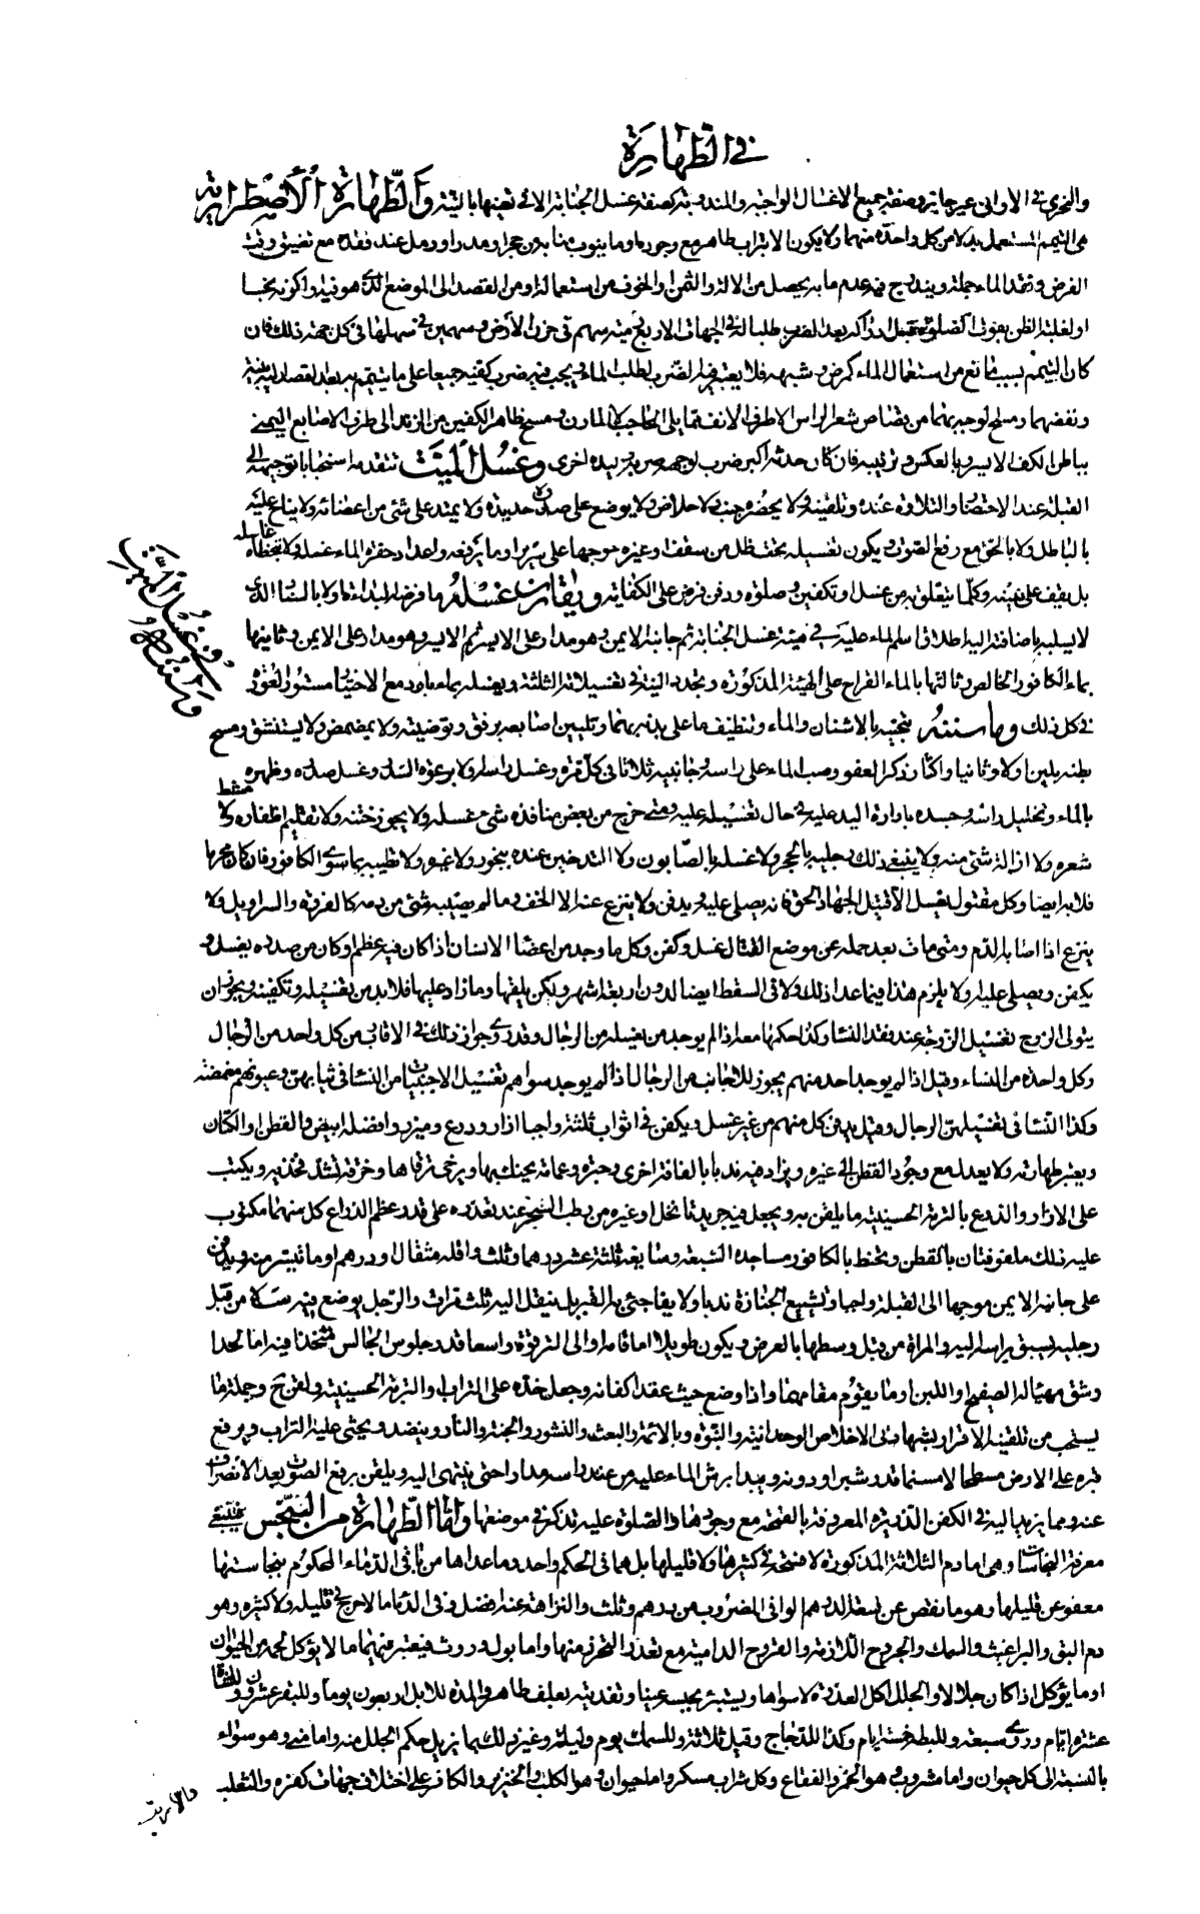 في الطهارة
والتحري في الأواني غير جايز وصفة جميع الاغسال الواجبة والمندوبة كصفة غسل الجنابة الا في تعينها بالنية والطهارة الأضطرارية
هي التيمم المستعمل بدلا من كل واحدة منهما ولا يكون الا بتراب طاهر مع وجوده وما ينوب منابه من حجر او مدر او رمل عند فقده مع تضيق وقت
الفرض وفقد الماء جملة ويندرج فيه عدم ما به يحصل من الالة والثمن او الخوف من استعماله او من القصد الى الموضع الذي هو فيه او كونه نجسا
او لغلبة الظن بفوت الصلوة قبل ادراكه بعد الضرب طلبا له في الجهات الاربع رمية سهم في حزن الأرض وسهمين في سهلها في كل جهة ذلك فان
كان التيمم بسبب مانع من استعمال الماء كمرض وشبهه فلا يعتبر فيه الضرب لطلب الماء ويجب فيه ضرب كفيه جميعا على ما يتيمم به بعد القصد اليه بنية
ونفضهما ومسح لوجهه بهما من قصاص شعر الراس الا طرف الانف مما يلي الحاجب لا المارن ومسح ظاهر الكفين من الزند الى طرف الاصابع اليمنى
بباطن الكف الايسر وبالعكس وترتيبه فان كان حدثه اكبر ضرب لوجهه مرة وليديه اخرى وغسل الميت تتقدمه استحبابا توجيهه الى
القبلة عند الاحتضار والتلاوة عنده وتلقينه ولا يحضره جنب ولا حايض ولا يوضع على صدره حديدة ولا يمتد على شئ من اعضائه ولا يناح عليه
بالباطل ولا بالحق مع رفع الصوت ويكون تغسيله تحت ظل من سقف او غيره موجها على سرير او ما يرفعه واعداد حفرة الماء غسله ولا يتخطاه غاسله
بل يقف على يمينه وكلما يتعلق به من غسل وتكفين وصلوة ودفن فرض على الكفاية ويقارن غسله ما فرضه البداءة اولا بالسدر الذي
لا يسلبه باضافته اليه اطلاق اسم الماء عليه في هيئة غسل الجنابة ثم جانبه الايمن وهو مدار على الايسر ثم الايسر وهو مدار على الايمن وثانيها
بماء الكافور الخالص وثالثها بالماء القراح على الهيئة المذكورة وتجدد النية في تغسيلاته الثلثة ويغسله بماء بارد مع الاختيار مستور العورة
في كل ذلك وما سننه تنجيته بالاشنان والماء وتنظيف ما على بدنه بهما وتليين اصابعه برفق وتوضيته ولا يمضمض ولا يستنشق ومسح
بطنه بلين اولا وثانيا واكثار ذكر العفو وصب الماء على راسه وجانبيه ثلاثا في كل مرة وغسل راسه اولا برغوة السدر وغسل صدره وظهره
بالماء وتخليل راسه وجسده بادارة اليد عليه في حال تغسيله عليه ومتى خرج من بعض منافذه شئ غسله ولا يجوز ختنه ولا تقليم اظفاره ولا مشط
شعره ولا ازالة شئ منه ولا ينبغي ذلك رجليه بالحجر ولا غسله بالصابون ولا التدخين عنده ببخور ولا غيره ولا تطييبه بما سوى الكافور فان كان محرما
فلا به ايضا وكل مقتول يغسل الا قتيل الجهاد الحق فانه يصلى عليه ويدفن ولا ينزع عنه الا الخف وما لم يصبه شئ من دمه كالفروة والسراويل ولا
ينزع اذا اصابه الدم ومتى مات بعد حمله عن موضع القتال غسل وكفن وكل ما وجد من اعضاء الانسان اذا كان فيه عظم او كان من صدره يغسل و
يكفن ويصلى عليه ولا يلزم هذا فيما عدا ذلك ولا في السقط ايضا لدون اربعة اشهر ولكن يلفها وما زاد عليها فلا بد من تغسيله وتكفينه ويجوز ان
يتولى الزوج تغسيل الزوجة عند فقد النساء وكذا حكمها معه اذا لم يوجد من يغسله من الرجال وقد روي جواز ذلك في الاقارب من كل واحد من الرجال
وكل واحدة من النساء وقيل اذا لم يوجد احد منهم يجوز للاجانب من الرجال اذا لم يوجد سواهم تغسيل الاجنبيات من النساء في ثيابهن وعيونهم مغمضة
وكذا النساء في تغسيلهن الرجال وقيل يدفن كل منهم من غير غسل ويكفن في اثواب ثلثة واجبا ازار ودرع وميزر وافضله ابيض والقطن او الكتان
ويعتبر طهارته ولا يعدل مع وجود القطن الى غيره ويزاد فيه ندبا بالفافة اخرى وحبرة وعمامة يحنك بها ويرخى طرفاها وخرقة تشد فخذيه ويكتب
على الازار والدرع بالتربة الحسينية ما يلقن به ويجعل فيه جريدتا نخل او غيره من رطب الشجر عند تعذره على قدر عظم الذراع كل منهما مكتوب
عليه ذلك ملفوفتان بالقطن ويحنط بالكافور مساجده السبعة وسايغه ثلثة عشر درهما وثلث واقله مثقال او درهم او ما تيسر منه ويدفن
على جانبه الايمن موجها الى القبلة واجبا وتشييع الجنازة ندبا ولا يفاجئ به القبر بل ينقل اليه ثلث مرات والرجل يوضع فيه سلا من قبل
رجليه يسبق براسه اليه والمراة من قبل وسطها بالعرض ويكون طويلا اما قامة او الى الترقوة واسعا قدر جلوس الجالس متخذا فيه اما لحدا
وشق مهيا له الصفيح او اللبن او ما يقوم مقامهما واذا وضع حيث عقد اكفانه وجعل خده على التراب والتربة الحسينية ولقن وجملة ما
يستحب من تلقينه الاقرار بشهادتي الاخلاص الوحدانية والنبوة وبالائمة والبعث والنشور والجنة والنار وينضد ويحثى عليه التراب ويرفع
قبره على الارض مسطحا لا مسنما قدر شبر او دونه ويبدا برش الماء عليه من عند راسه مدارا حتى ينتهى اليه ويلقن برفع الصوت بعد الانصراف
عنه ومما يزيد اليه في الكفن الذريرة المعروفة بالقمحة مع وجودها والصلوة عليه تذكر في موضعها واما الطهارة من النجس فينبغي
معرفة النجاسات وهي اما دم الثلاثة المذكورة لا فسحة في كثيرها ولا قليلها بل هما في الحكم واحد وما عداها من باقي الدماء المحكوم بنجاستها
معفو عن قليلها وهو ما نقص عن سعة الدرهم الوافي المضروب من درهم وثلث والنزاهة عنه افضل وفي الدماء ما لا حرج في قليله ولا كثيره وهو
دم البق والبراغيث والسمك والجروح اللازمة والقروح الدامية مع تعذر التحرز منها واما بول وروث فيعتبر فيهما ما لا يؤكل لحمه من الحيوان
او ما يؤكل اذا كان جلالا والجلل اكل العذرة لا سواها ويستبرئ بحبسه عنها وتغذيته بعلف طاهر والمدة للابل اربعون يوما وللبقر عشرون وللشاة
عشرة ايام وروي سبعة وللبطة خمسة ايام وكذا للدجاج وقيل ثلاثة وللسمك يوم وليلة وغير ذلك بما يزيل حكم الجلل منه واما مني وهو سواء
بالنسبة الى كل حيوان واما مشروب وهو الخمر والفقاع وكل شراب مسكر واما حيوان وهو الكلب والخنزير والكافر على اختلاف جهات كفره والثعلب
والارنب